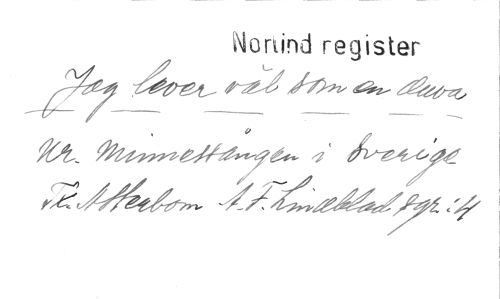 Norlind register
Jag lever väl som en duva
ur. Minnessången i Sverige
Tx. Atterbom A. F. Lindblad sgr. : 4